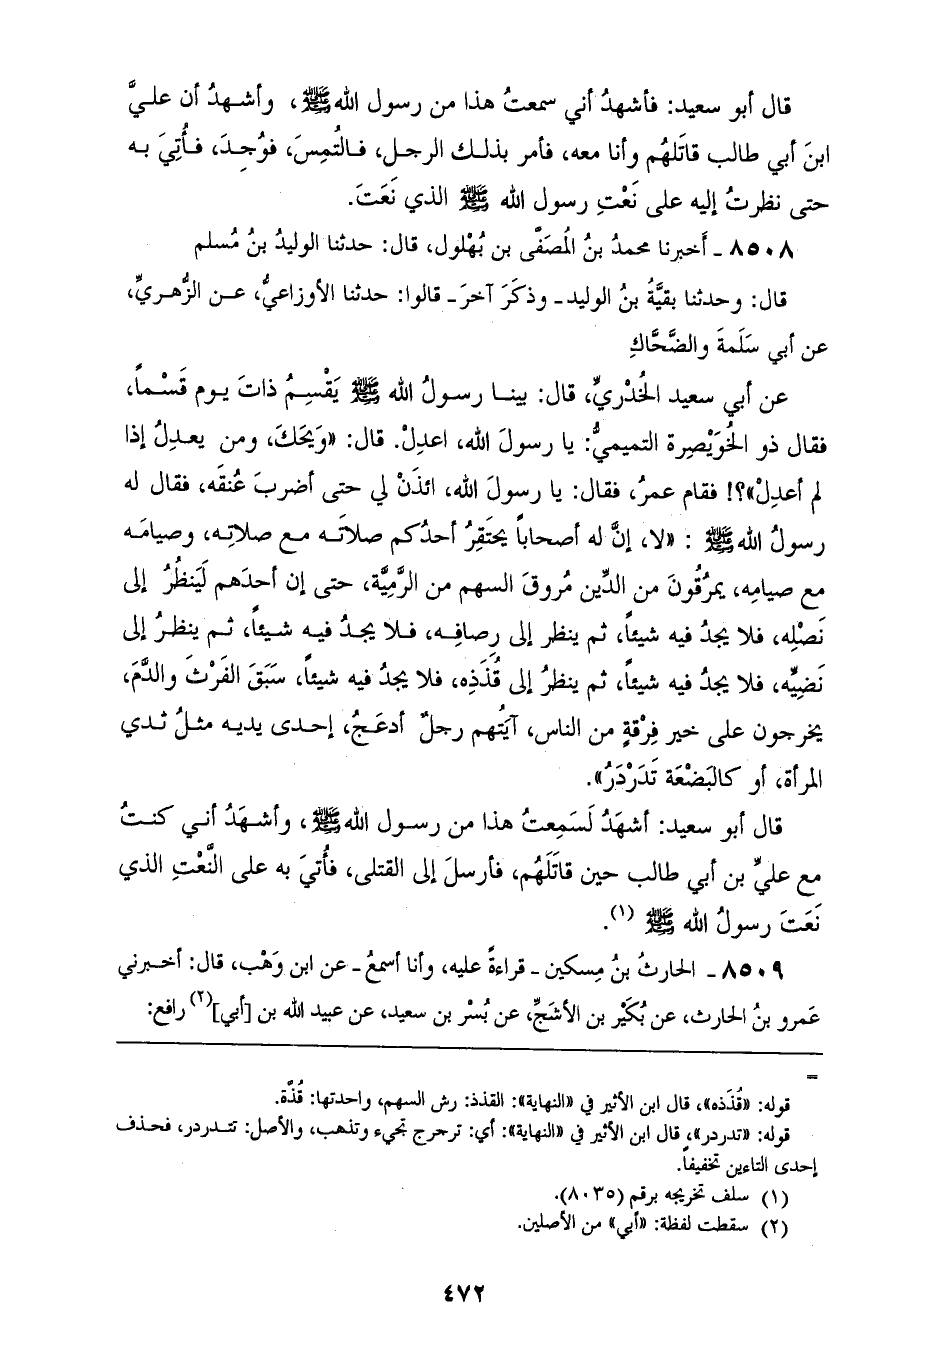 قال أبو سعيد: فأشهدُ أني سمعتُ هذا من رسول الله ﷺ، وأشهدُ أن عليَّ
ابنَ أبي طالب قاتَلهُم وأنا معه، فأمر بذلك الرجل، فالتُمِسَ، فوُجِدَ، فأُتِيَ به
حتى نظرتُ إليه على نَعْتِ رسول الله ﷺ الذي نَعَتَ.
٨٥٠٨ ـ أخبرنا محمدُ بنُ المُصَفَّى بن بُهْلول، قال: حدثنا الوليدُ بنُ مُسلم
قال: وحدثنا بقيَّةُ بنُ الوليد ـ وذكَرَ آخرَ ـ قالوا: حدثنا الأوزاعيُّ، عن الزُّهريِّ،
عن أبي سَلَمةَ والضَّحَّاكِ
عن أبي سعيد الخُدْريِّ، قال: بينا رسولُ الله ﷺ يَقْسِمُ ذاتَ يوم قَسْماً،
فقال ذو الخُوَيْصِرة التميميُّ: يا رسولَ الله، اعدِلْ. قال: «وَيحَكَ، ومن يعدِلُ إذا
لم أعدِلْ»؟! فقام عمرُ، فقال: يا رسولَ الله، ائذَنْ لي حتى أضربَ عُنقَه، فقال له
رسولُ الله ﷺ : «لا، إنَّ له أصحاباً يحتَقِرُ أحدُكم صلاتَه مع صلاتِه، وصيامَه
مع صيامِه، يمرُقُونَ من الدِّين مُروقَ السهم من الرَّمِيَّة، حتى إن أحدَهم لَيَنظُرُ إلى
نَصْلِه، فلا يجدُ فيه شيئاً، ثم ينظر إلى رِصافِه، فلا يجدُ فيه شيئاً، ثم ينظرُ إلى
نَضِيِّه، فلا يجدُ فيه شيئاً، ثم ينظرُ إلى قُذَذِه، فلا يجدُ فيه شيئاً، سَبَقَ الفَرْثَ والدَّمَ،
يخرجون على خير فِرْقةٍ من الناس، آيَتُهم رجلٌ أدعَجُ، إحدى يديه مثلُ ثدي
المرأة، أو كالبَضْعَة تَدَرْدَرُ».
قال أبو سعيد: أشهَدُ لَسَمِعتُ هذا من رسول الله ﷺ، وأشهَدُ أني كنتُ
مع عليِّ بن أبي طالب حين قاتَلَهُم، فأرسلَ إلى القتلى، فأُتيَ به على النَّعْتِ الذي
نَعَتَ رسولُ الله ﷺ (١).
٨٥٠٩ ـ الحارثُ بنُ مِسكين ـ قراءةً عليه، وأنا أسمعُ ـ عن ابن وَهْب، قال: أخبرني
عَمرو بنُ الحارث، عن بُكَيْر بن الأشَجِّ، عن بُسْر بن سعيد، عن عبيد الله بن [أبي](٢) رافع:
=
قوله: «قُذَذه»، قال ابن الأثير في «النهاية»: القذذ: رش السهم، واحدتها: قُذَّة.
قوله: «تدردر»، قال ابن الأثير في «النهاية»: أي: ترجرج تجيء وتذهب، والأصل: تتدردر، فحذف
إحدى التاءين تخفيفاً.
(١) سلف تخريجه برقم (٨٠٣٥).
(٢) سقطت لفظة: «أبي» من الأصلين.
٤٧٢